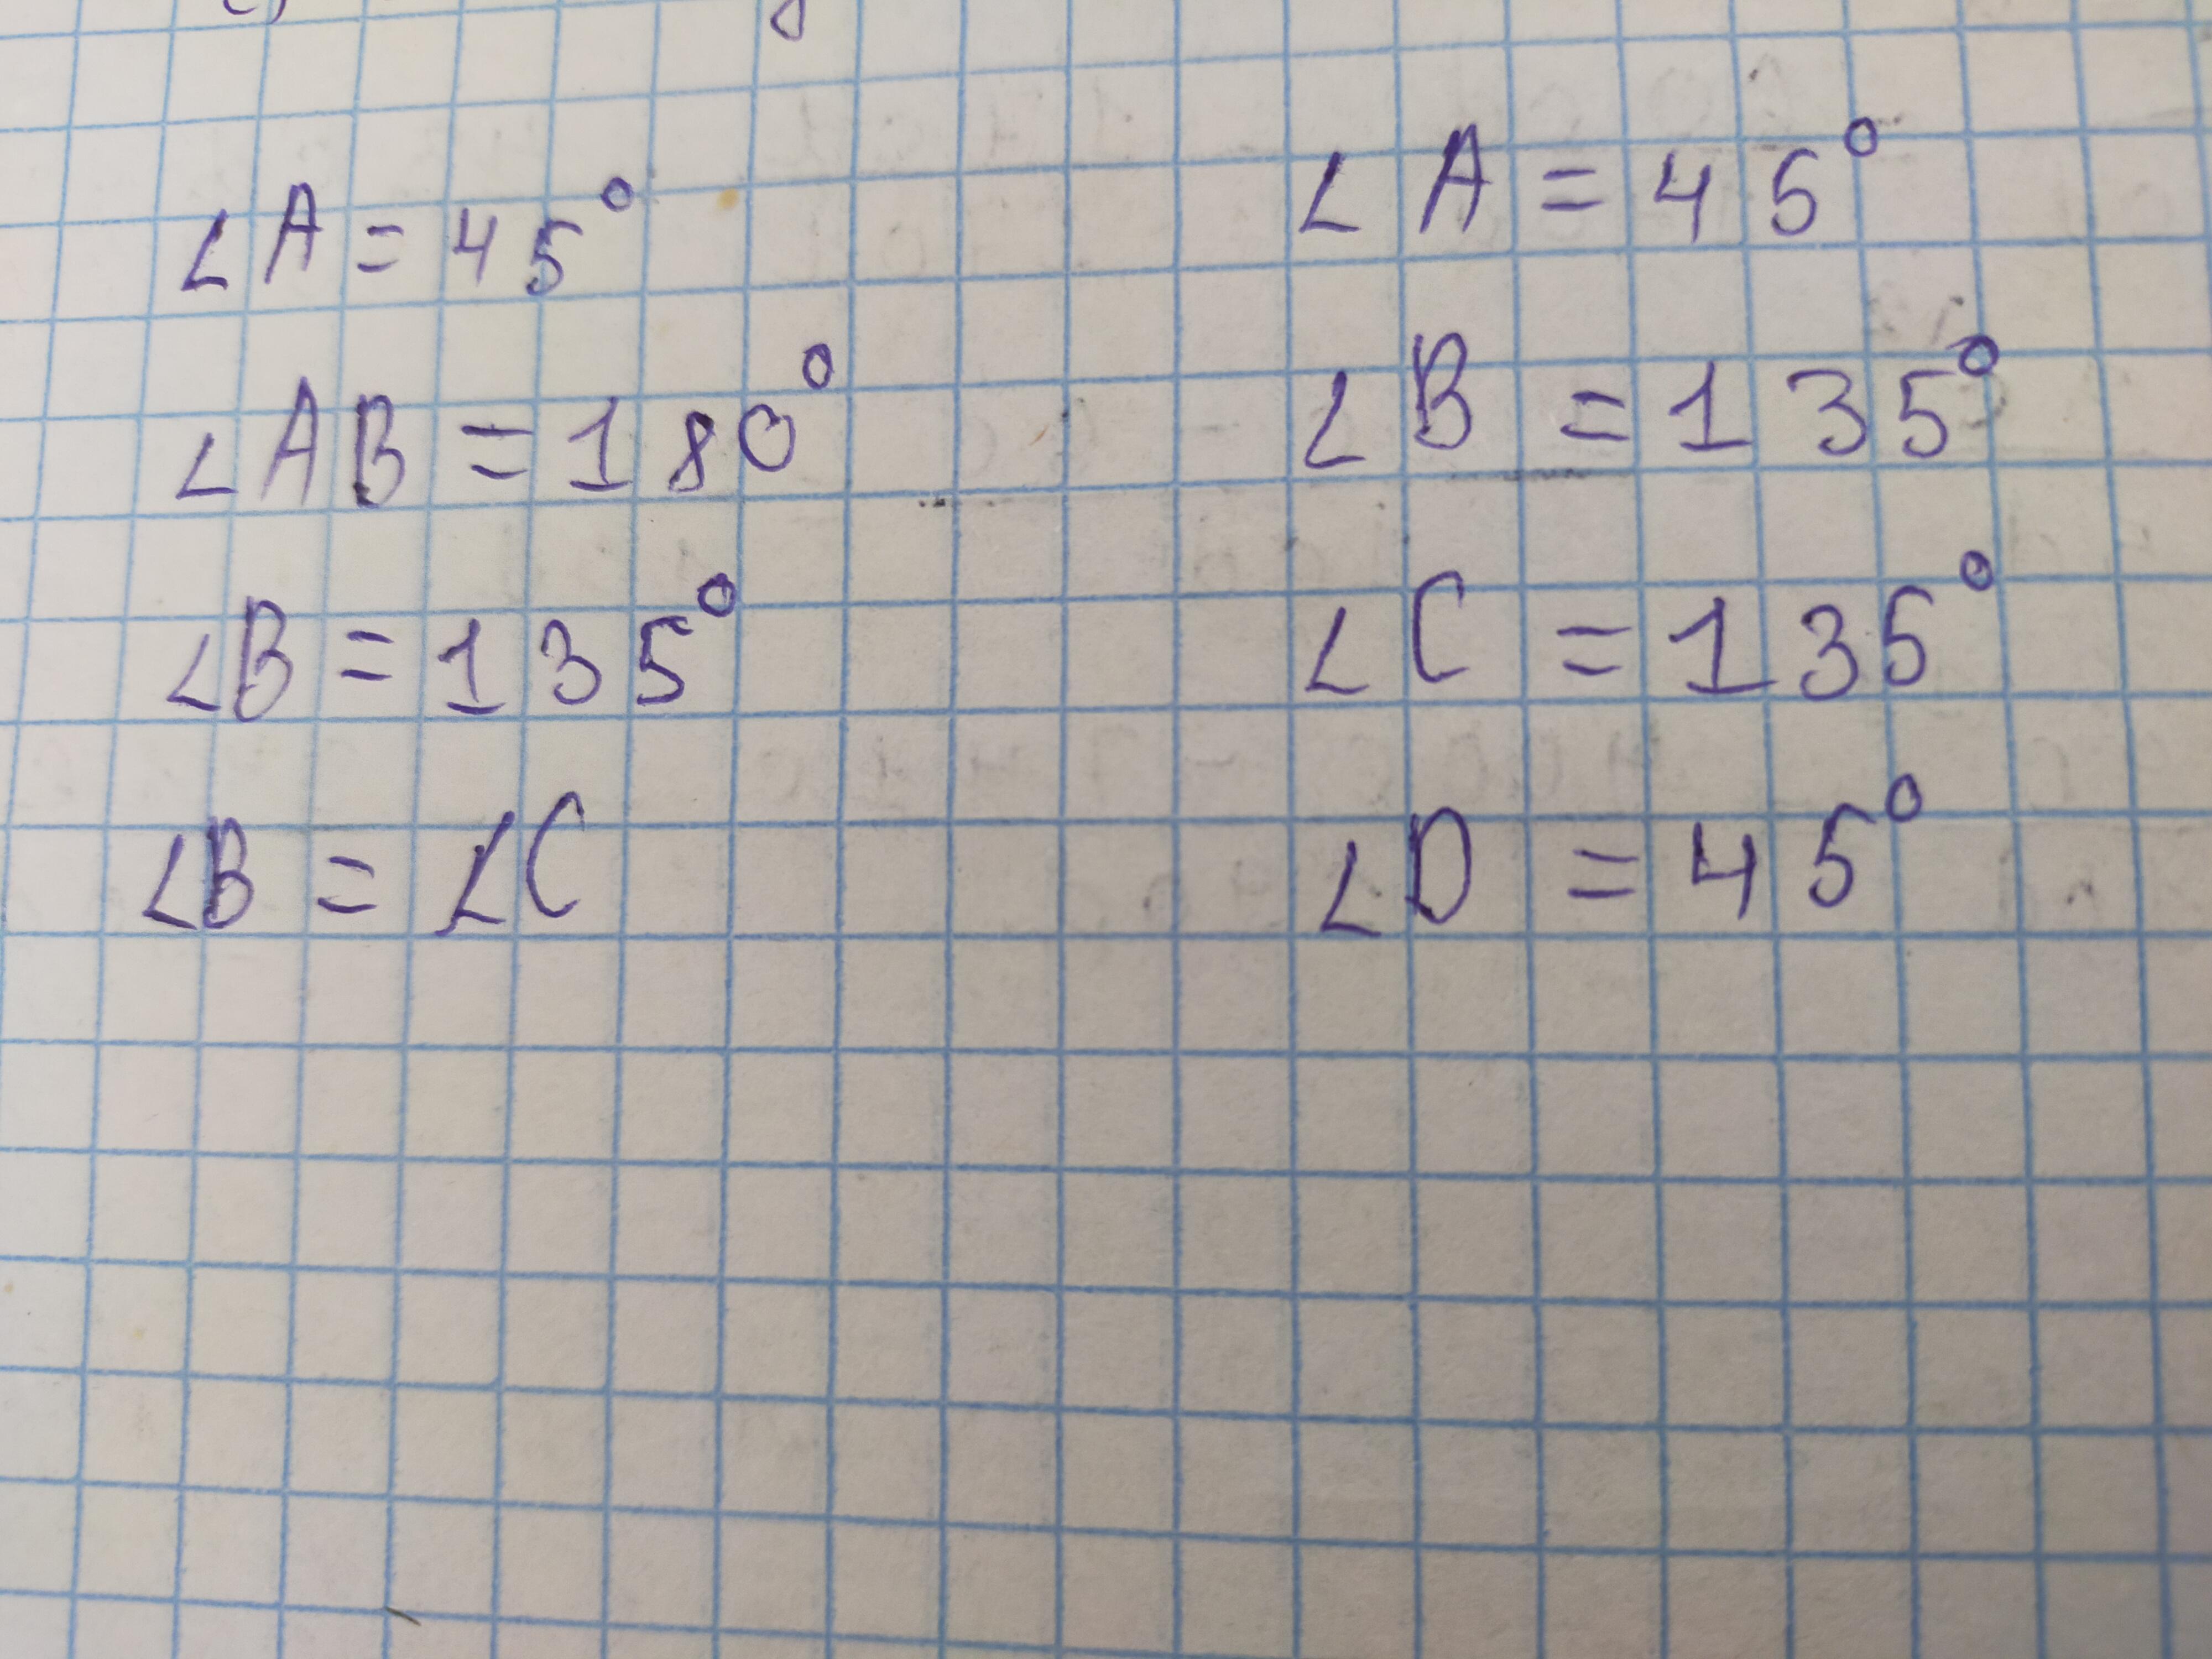 ∠A = 45°
∠AB = 180°
∠B = 135°
∠B = ∠C
∠A = 45°
∠B = 135°
∠C = 135°
∠D = 45°